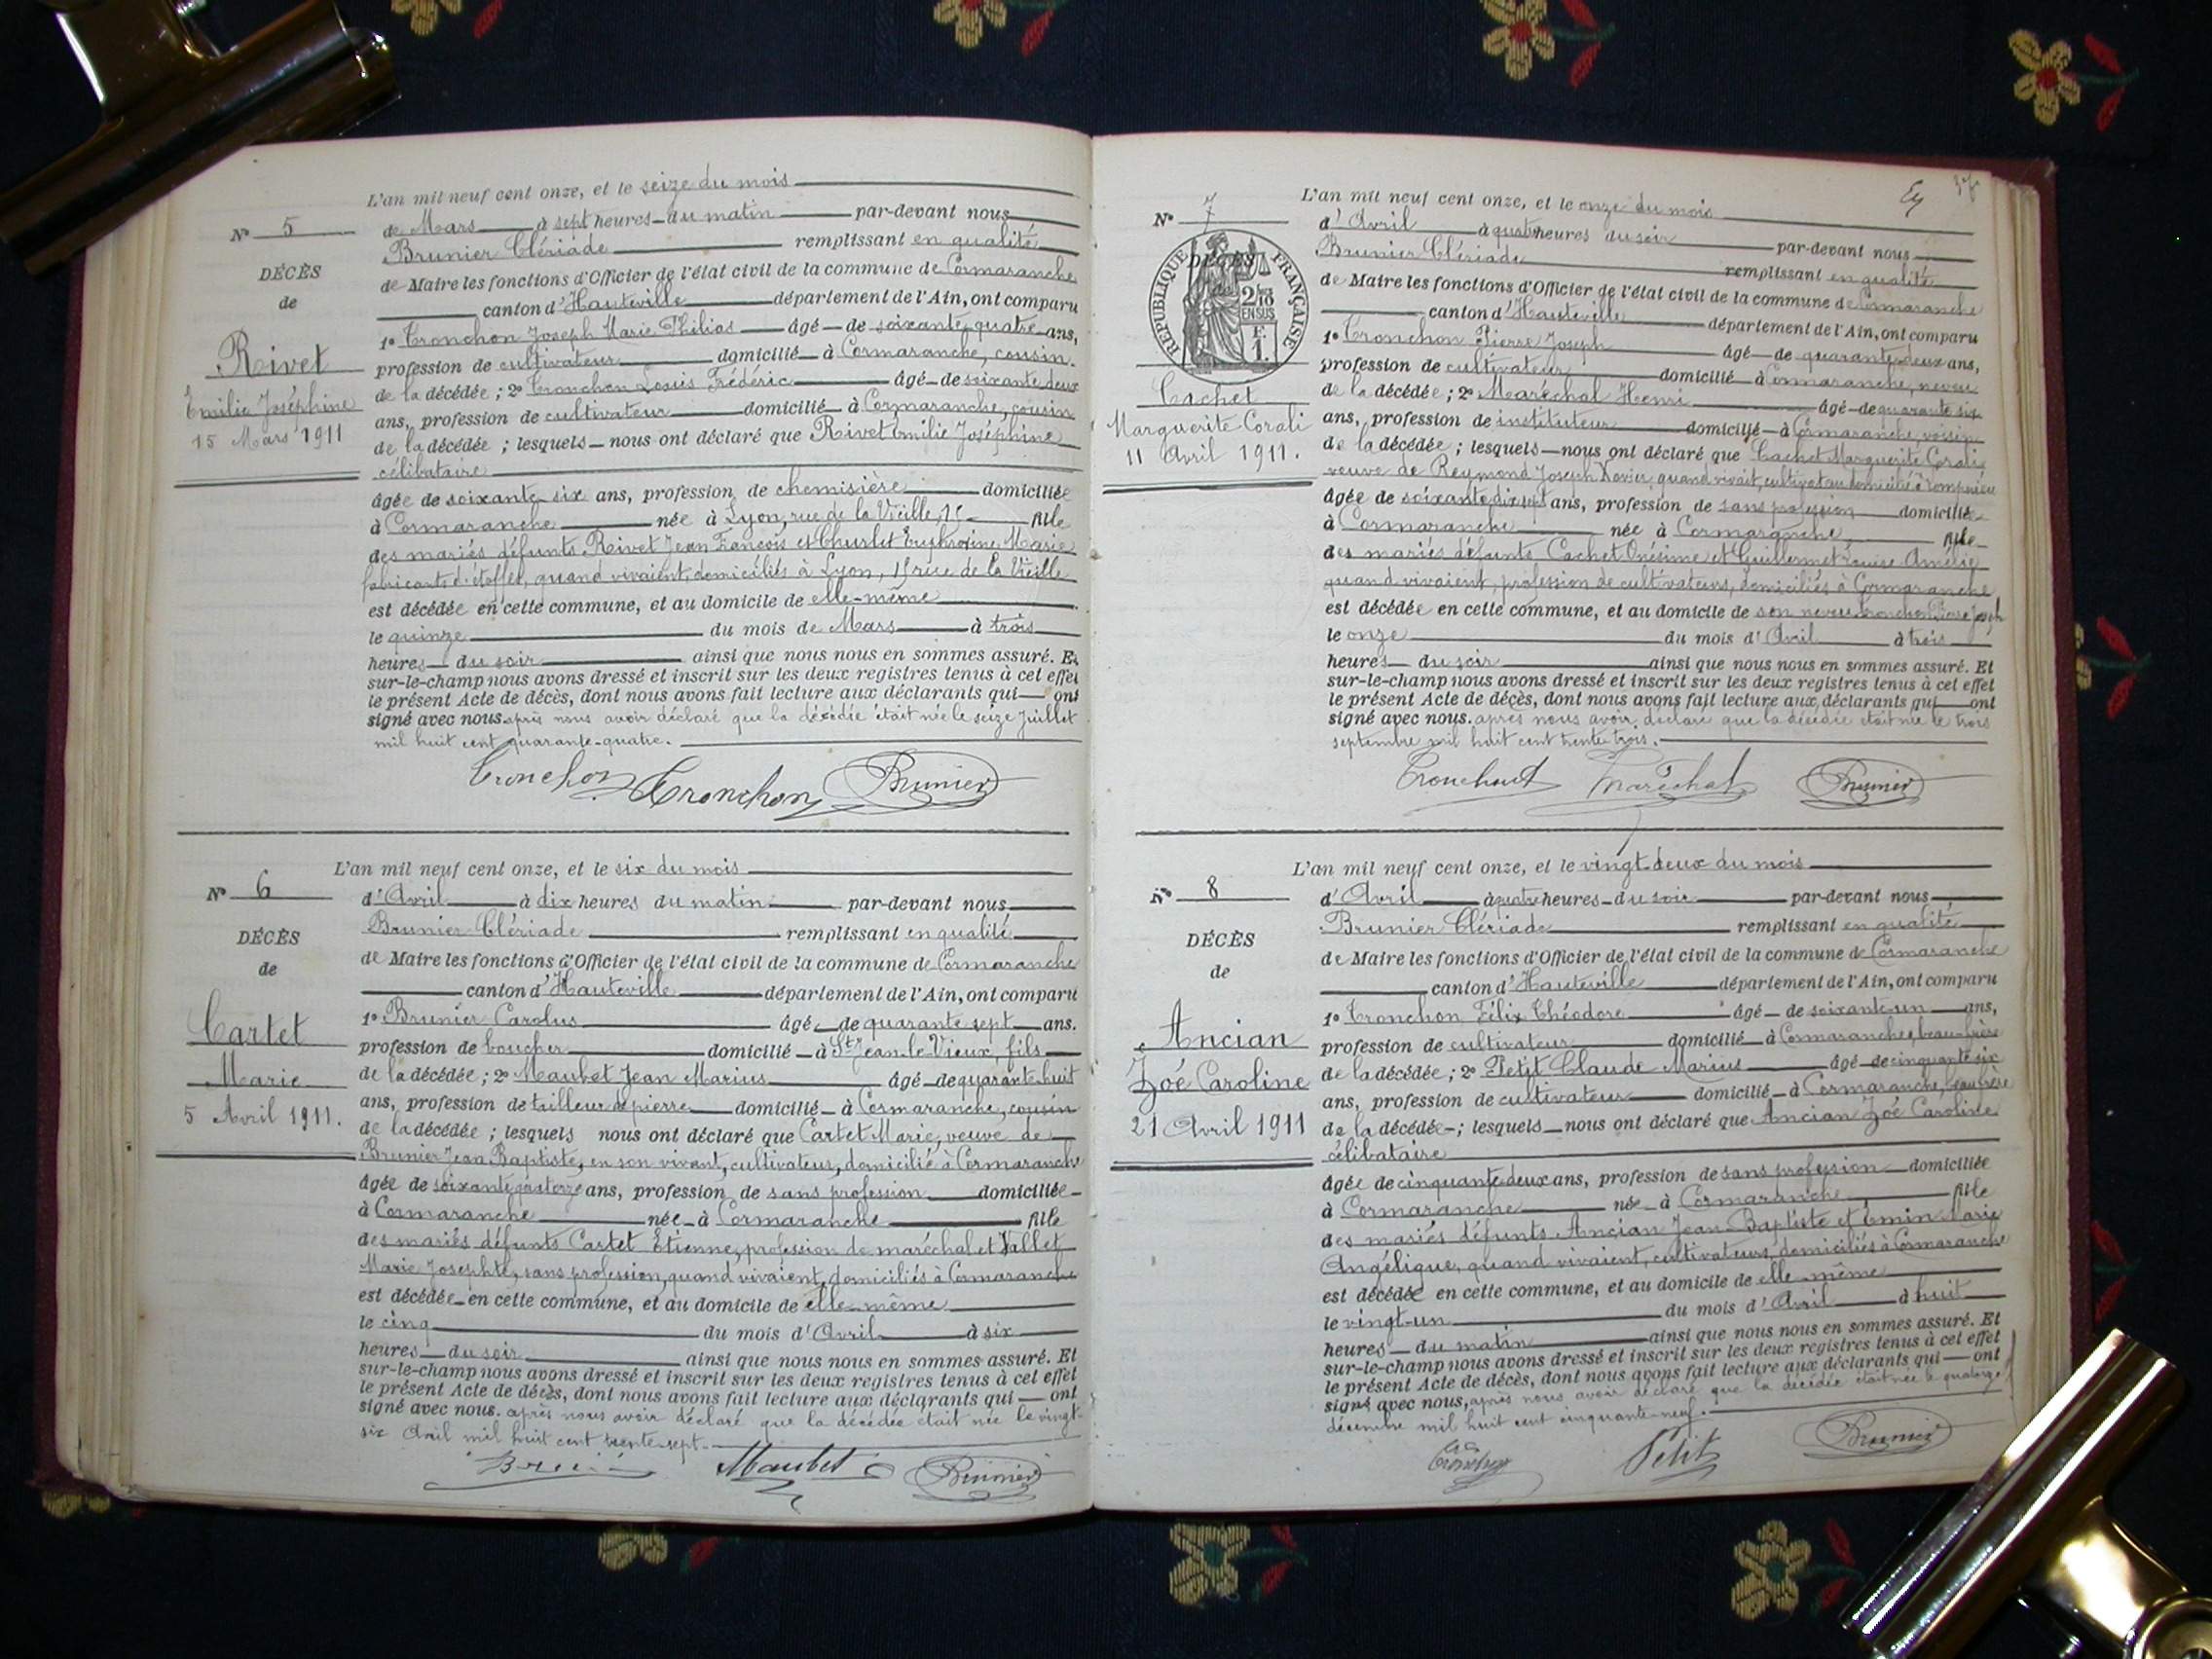 L'an mil neuf cent onze, et le seize du mois
N° 5
de Mars à sept heures du matin par-devant nous
Brunier Clériade remplissant en qualité
DÉCÈS
de Maire les fonctions d'Officier de l'état civil de la commune de Cormaranche
de
canton d'Hauteville département de l'Ain, ont comparu
1° Tronchon Joseph Marie Philias âgé de soixante quatre ans,
Rivet
profession de cultivateur domicilié à Cormaranche, cousin
de la décédée ; 2° Tronchon Louis Frédéric âgé de soixante deux
Emilie Joséphine
ans, profession de cultivateur domicilié à Cormaranche, cousin
15 Mars 1911
de la décédée ; lesquels nous ont déclaré que Rivet Emilie Joséphine
célibataire
âgée de soixante six ans, profession de chemisière domiciliée
à Cormaranche née à Lyon, rue de la Vieille, 15 fille
des mariés défunts Rivet Jean François et Churlet Euphrosine Marie
fabricants d'étoffes, quand vivaient, domiciliés à Lyon, 15 rue de la Vieille
est décédée en cette commune, et au domicile de elle-même
le quinze du mois de Mars à trois
heures du soir ainsi que nous nous en sommes assuré. Et
sur-le-champ nous avons dressé et inscrit sur les deux registres tenus à cet effet
le présent Acte de décès, dont nous avons fait lecture aux déclarants qui ont
signé avec nous. après nous avoir déclaré que la décédée était née le seize Juillet
mil huit cent quarante-quatre.
Tronchon Tronchon Brunier
L'an mil neuf cent onze, et le six du mois
N° 6
d'Avril à dix heures du matin par-devant nous
Brunier Clériade remplissant en qualité
DÉCÈS
de Maire les fonctions d'Officier de l'état civil de la commune de Cormaranche
de
canton d'Hauteville département de l'Ain, ont comparu
1° Brunier Carolus âgé de quarante sept ans.
Cartet
profession de boucher domicilié à St Jean-le-Vieux, fils
Marie
de la décédée ; 2° Maubet Jean Marius âgé de quarante huit
ans, profession de tailleur de pierre domicilié à Cormaranche, cousin
5 Avril 1911.
de la décédée ; lesquels nous ont déclaré que Cartet Marie, veuve de
Brunier Jean Baptiste, en son vivant, cultivateur, domicilié à Cormaranche
âgée de soixante quatorze ans, profession de sans profession domiciliée
à Cormaranche née à Cormaranche fille
des mariés défunts Cartet Etienne, profession de maréchal et Vallet
Marie Josephte, sans profession, quand vivaient, domiciliés à Cormaranche
est décédée en cette commune, et au domicile de elle-même
le cinq du mois d'Avril à six
heures du soir ainsi que nous nous en sommes assuré. Et
sur-le-champ nous avons dressé et inscrit sur les deux registres tenus à cet effet
le présent Acte de décès, dont nous avons fait lecture aux déclarants qui ont
signé avec nous. après nous avoir déclaré que la décédée était née le vingt-
six Avril mil huit cent trente-sept.
Maubet Brunier
L'an mil neuf cent onze, et le onze du mois
N° 7
d'Avril à quatre heures du soir par-devant nous
Brunier Clériade remplissant en qualité
DÉCÈS
RÉPUBLIQUE FRANÇAISE
2/10 EN SUS
F. 1.
de Maire les fonctions d'Officier de l'état civil de la commune de Cormaranche
canton d'Hauteville département de l'Ain, ont comparu
1° Tronchon Pierre Joseph âgé de quarante-deux ans,
profession de cultivateur domicilié à Cormaranche, neveu
Cachet
de la décédée ; 2° Maréchal Henri âgé de quarante six
Marguerite Corali
ans, profession de instituteur domicilié à Cormaranche, voisin
11 Avril 1911.
de la décédée ; lesquels nous ont déclaré que Cachet Marguerite Corali
veuve de Reymond Joseph Xavier, quand vivait, cultivateur domicilié à
âgée de soixante dix sept ans, profession de sans profession domiciliée
à Cormaranche née à Cormaranche fille
des mariés défunts Cachet Onésime et Guillermet Louise Amélie
quand vivaient, profession de cultivateurs, domiciliés à Cormaranche
est décédée en cette commune, et au domicile de son neveu Tronchon Pierre Joseph
le onze du mois d'Avril à trois
heures du soir ainsi que nous nous en sommes assuré. Et
sur-le-champ nous avons dressé et inscrit sur les deux registres tenus à cet effet
le présent Acte de décès, dont nous avons fait lecture aux déclarants qui ont
signé avec nous. après nous avoir déclaré que la décédée était née le trois
septembre mil huit cent trente trois.
Maréchal Brunier
L'an mil neuf cent onze, et le vingt-deux du mois
N° 8
d'Avril à quatre heures du soir par-devant nous
Brunier Clériade remplissant en qualité
DÉCÈS
de Maire les fonctions d'Officier de l'état civil de la commune de Cormaranche
de
canton d'Hauteville département de l'Ain, ont comparu
1° Tronchon Félix Théodore âgé de soixante-un ans,
Ancian
profession de cultivateur domicilié à Cormaranche, beau-frère
Zoé Caroline
de la décédée ; 2° Petit Claude Marius âgé de cinquante six
ans, profession de cultivateur domicilié à Cormaranche, beau frère
21 Avril 1911
de la décédée ; lesquels nous ont déclaré que Ancian Zoé Caroline
célibataire
âgée de cinquante-deux ans, profession de sans profession domiciliée
à Cormaranche née à Cormaranche, fille
des mariés défunts Ancian Jean-Baptiste et Emin Marie
Angélique, quand vivaient, cultivateurs, domiciliés à Cormaranche
est décédée en cette commune, et au domicile de elle-même
le vingt-un du mois d'Avril à huit
heures du matin ainsi que nous nous en sommes assuré. Et
sur-le-champ nous avons dressé et inscrit sur les deux registres tenus à cet effet
le présent Acte de décès, dont nous avons fait lecture aux déclarants qui ont
signé avec nous, après nous avoir déclaré que la décédée était née le quatorze
décembre mil huit cent cinquante-neuf.
Tronchon Petit Brunier